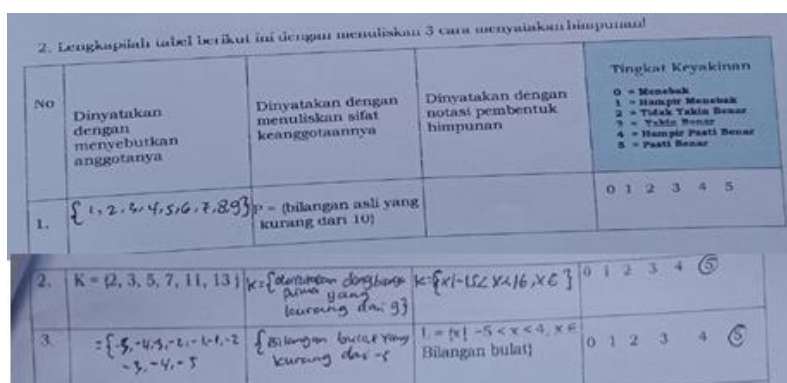 2. Lengkapilah tabel berikut ini dengan menuliskan 3 cara menyatakan himpunan!
No
Dinyatakan
dengan
menyebutkan
anggotanya
Dinyatakan dengan
menuliskan sifat
keanggotaannya
Dinyatakan dengan
notasi pembentuk
himpunan
Tingkat Keyakinan
0 = Menebak
1 = Hampir Menebak
2 = Tidak Yakin Benar
3 = Yakin Benar
4 = Hampir Pasti Benar
5 = Pasti Benar
1.
{1,2,3,4,5,6,7,8,9}
P = {bilangan asli yang
kurang dari 10}
0 1 2 3 4 5
2.
K = {2, 3, 5, 7, 11, 13}
K = {
prima yang
kurang dari 9}
K = {x|-15<x<16, x∈}
0 1 2 3 4 5
3.
= {-5,-4,-3,-2,-1,-1,-2
-3,-4,-5
{Bilangan bulat yang
kurang dari -5
L = {x| -5 < x < 4, x ∈
Bilangan bulat}
0 1 2 3 4 5